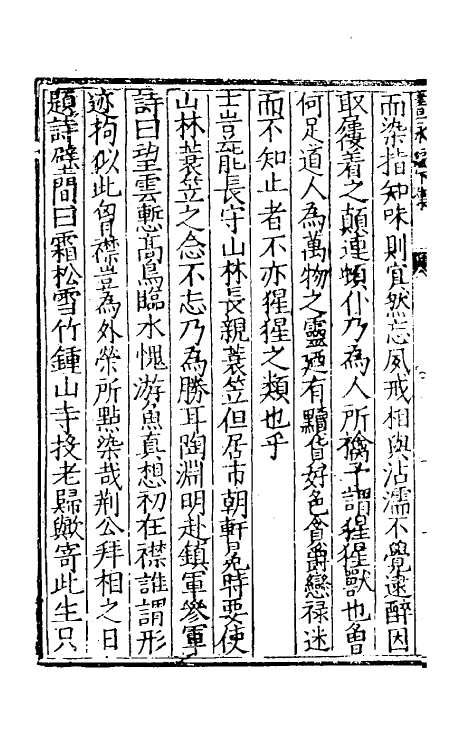 而染指知味則宜然忘夙戒相與沾濡不覺逮醉因
取屨着之顛連頓仆乃為人所擒予謂猩猩獸也魯
何足道人為萬物之靈廼有黷貨好色貪爵戀祿迷
而不知止者不亦猩猩之類也乎
士豈能長守山林長親蓑笠但居市朝軒冕時要使
山林蓑笠之念不忘乃為勝耳陶淵明赴鎮軍參軍
詩曰望雲慙高鳥臨水愧游魚真想初在襟誰謂形
迹拘似此胷襟豈為外榮所點染哉荆公拜相之日
題詩壁間曰霜松雪竹鍾山寺投老歸歟寄此生只